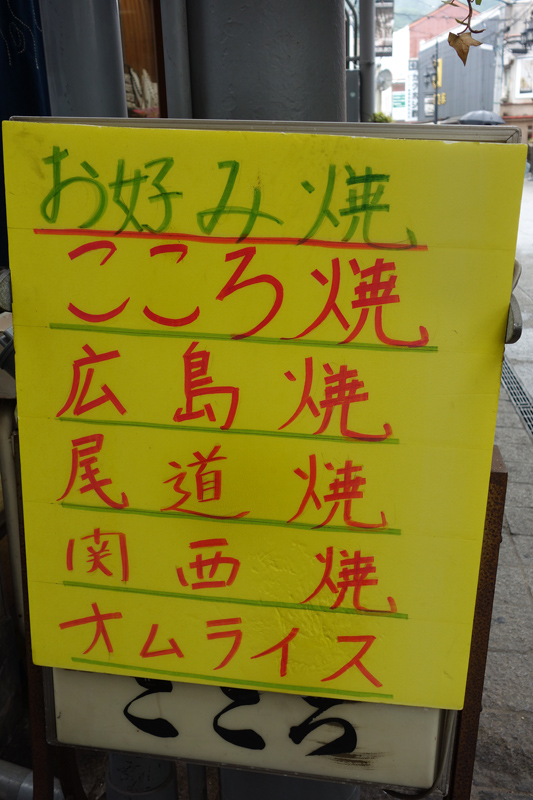 お好み焼
こころ焼
広島焼
尾道焼
関西焼
オムライス
こころ